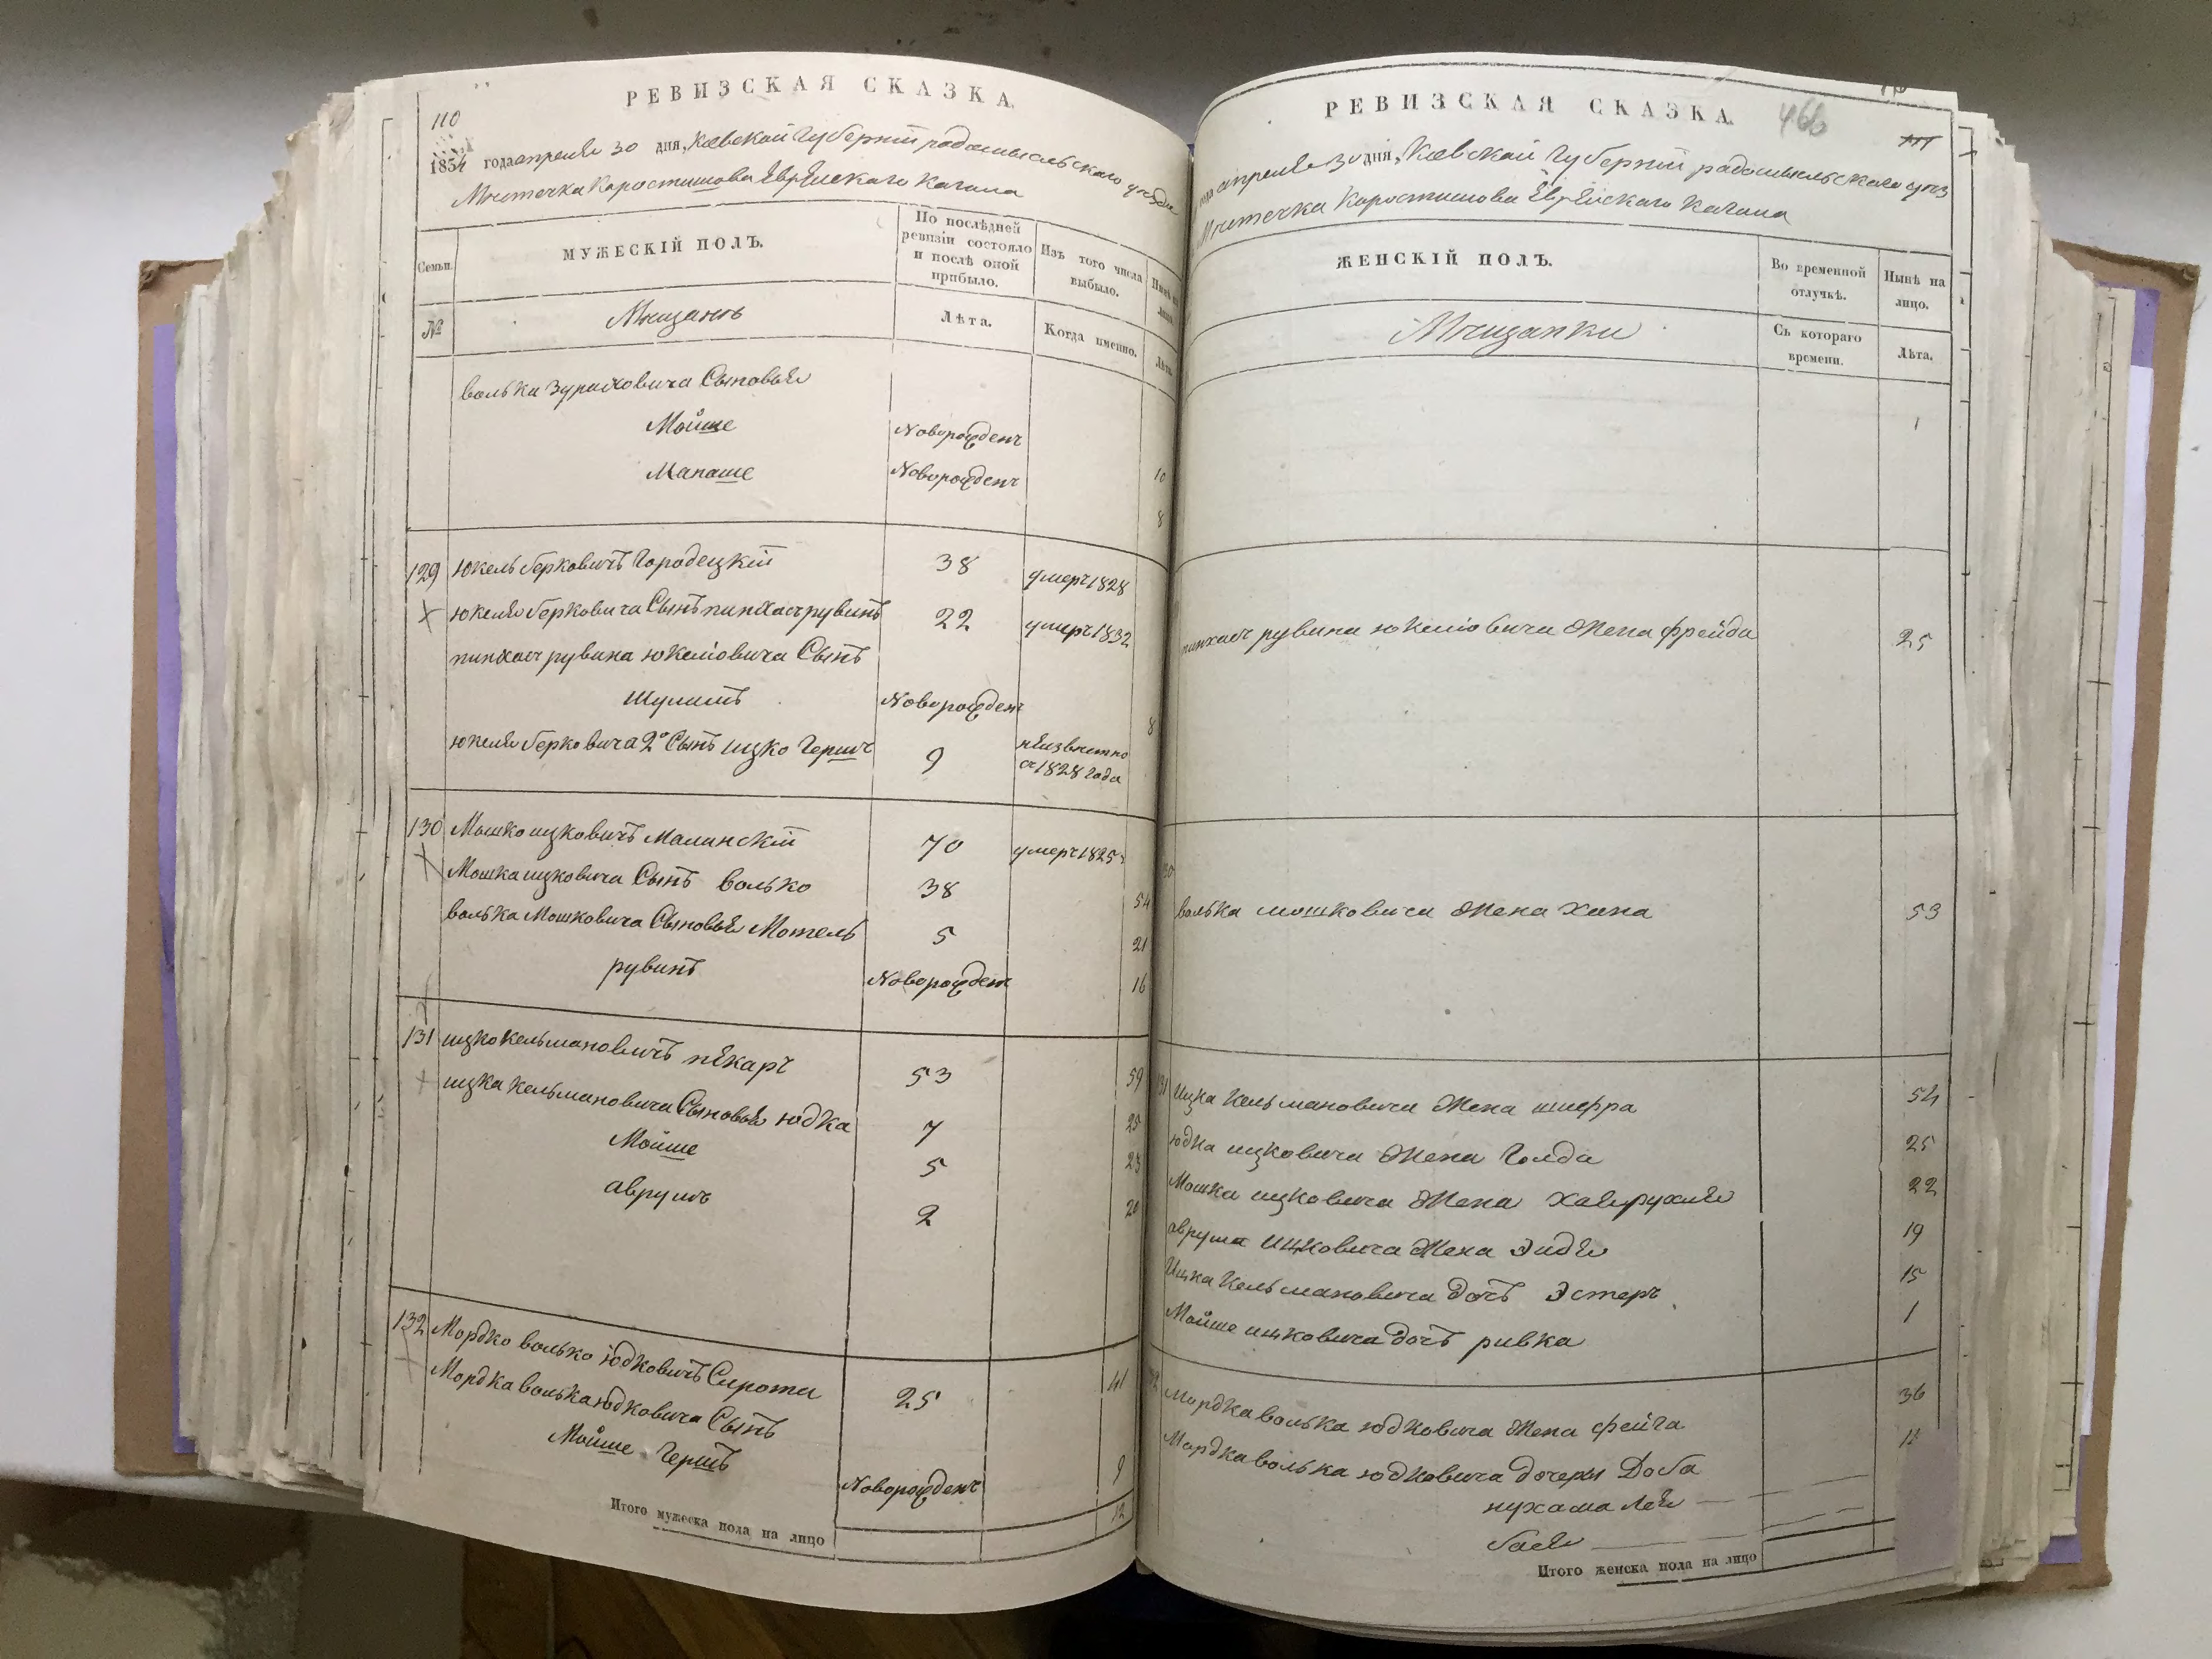 РЕВИЗСКАЯ СКАЗКА.
110
1834 года апреля 30 дня, Киевской Губернии радомысльского уезда
Местечка Коростишова Еврейскаго Кагала
Семьи.
МУЖЕСКІЙ ПОЛЪ.
По послѣдней ревизіи состояло и послѣ оной прибыло.
Изъ того числа выбыло.
№
Мещанъ
Лѣта.
Когда именно.
Лѣта.
волька Зураховича Сыновья
Мойше Новорожденъ 10
Манаше Новорожденъ 8
129 юкель берковичъ Городецкій 38 умеръ 1828
юкеля берковича Сынъ пинхасъ рувинъ 22 умеръ 1832
пинхасъ рувина юкеліовича Сынъ
Шулимъ Новорожден 8
юкеля берковича 2й Сынъ ицко Гершъ 9 неизвестно
съ 1828 года
130 Мошко ицковичъ Малинскій 70 умеръ 1825
Мошка ицковича Сынъ волько 38 54
волька Мошковича Сыновья Мотель 5 21
рувинъ Новорожден 16
131 ицко кельмановичъ пекаръ 53 59
ицка кельмановича Сыновья юдка 7 25
Мойше 5 23
аврумъ 2 20
132 Мордко волько юдковичъ Сирота 25 41
Мордка волька юдковича Сынъ
Мойше Гершъ Новорожденъ 9
Итого мужеска пола на лицо 12
РЕВИЗСКАЯ СКАЗКА.
466
111
года апреля 30 дня, Киевской Губернии радомысльскаго уезд
Местечка Коростишова Еврейскаго Кагала
ЖЕНСКІЙ ПОЛЪ.
Во временной отлучкѣ.
Нынѣ на лицо.
Мещанки
Съ котораго времени.
Лѣта.
1
пинхасъ рувина юкеліовича Жена фрейда 25
волька мошковича Жена Хана 53
131 Ицка Кельмановича Жена шифра 54
юдка ицковича Жена Голда 25
Мошка ицковича Жена 22
аврума ицковича Жена 19
Ицка Кельмановича дочь Эстеръ 15
Мойше ицковича дочь ривка 1
Мордка волька юдковича Жена фейга 36
Мордка волька юдковича дочеры Доба
нухама Лея
бася
Итого женска пола на лицо